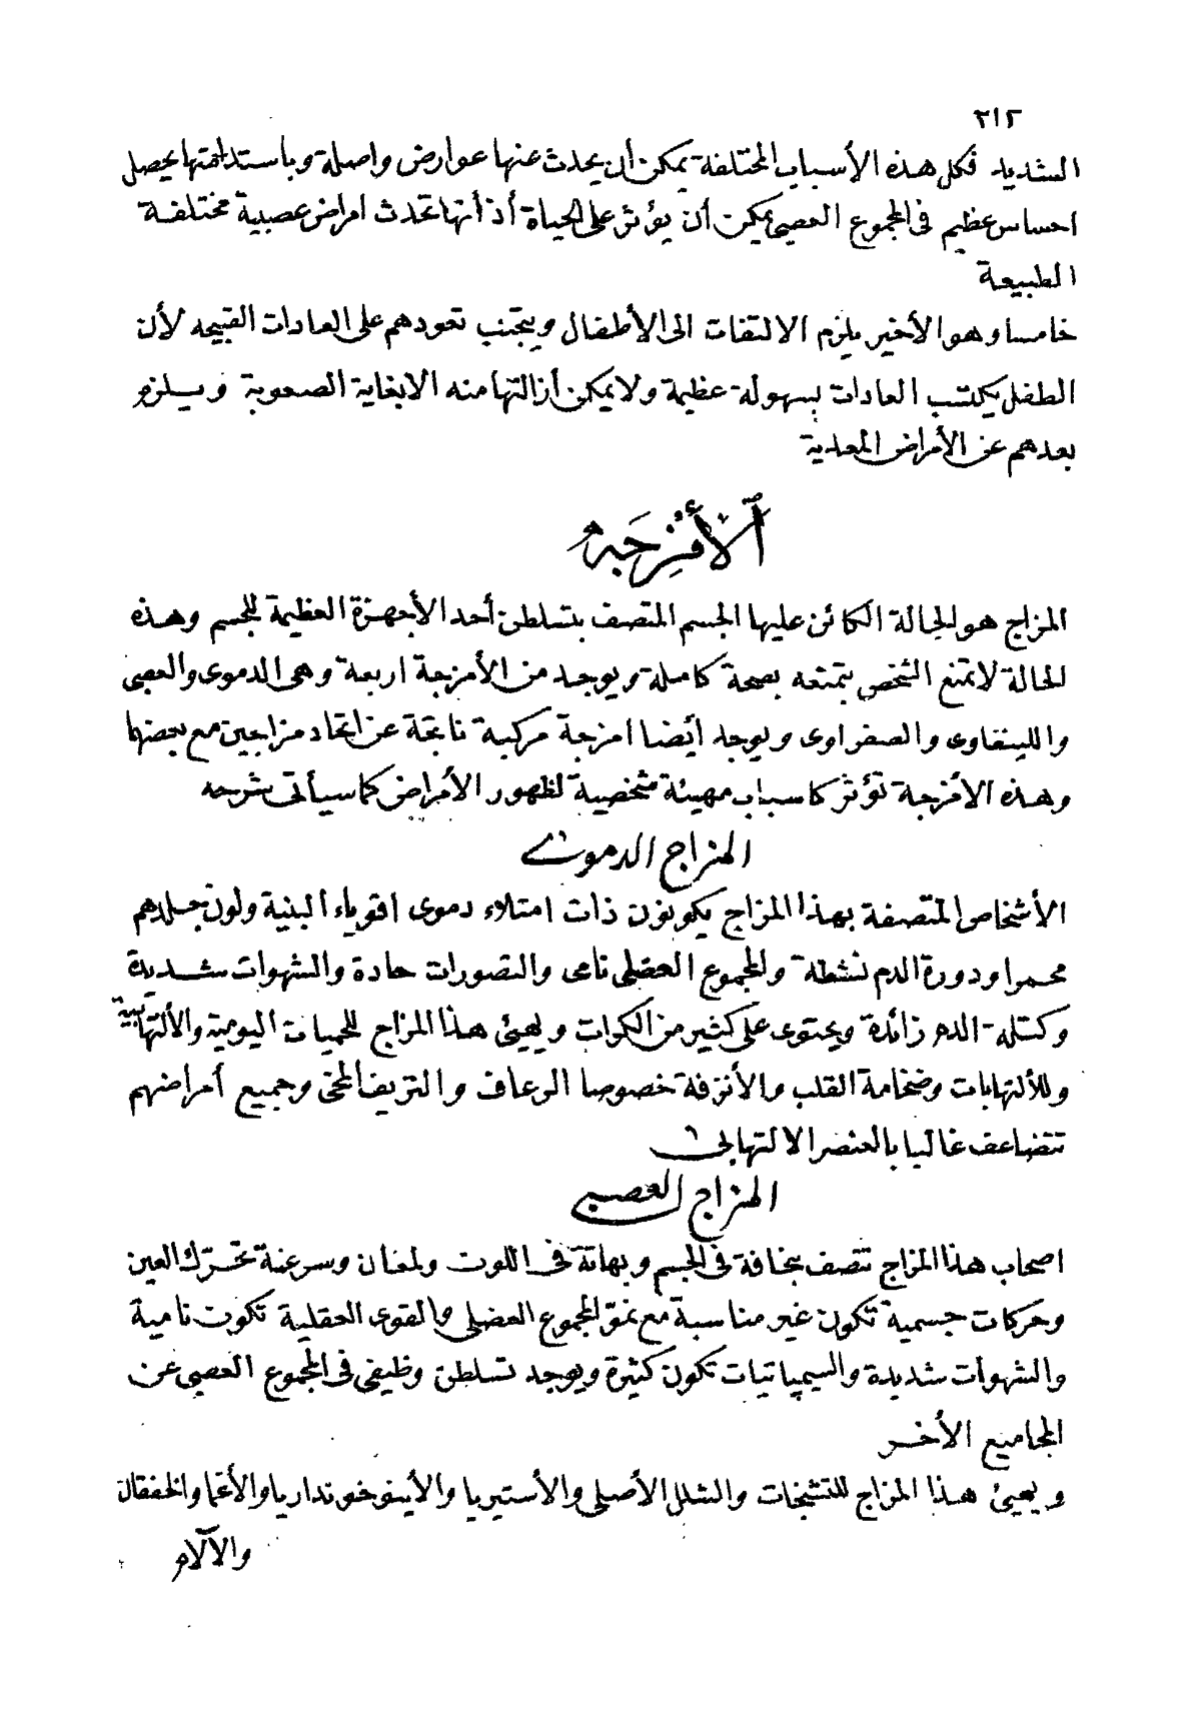 ٢١٢
الشديد فكل هذه الأسباب المختلفة يمكن أن يحدث عنها عوارض واصلة وباستدامتها يحصل
احساس عظيم فى المجموع العصبى يمكن أن يؤثر على الحياة أذ أنها تحدث امراض عصبية مختلفة
الطبيعة
خامسا وهو الأخير يلزم الالتفات الى الأطفال ويتجنب تعودهم على العادات القبيحه لأن
الطفل يكتسب العادات بسهولة عظيمة ولا يمكن أزالتها منه الا بغاية الصعوبة ويلزم
بعدهم عن الأمراض المعدية
الأمزجه
المزاج هو الحالة الكائن عليها الجسم المتصف بتسلطن أحد الأجهزة العظيمة للجسم وهذه
الحالة لا تمنع الشخص بتمتعه بصحة كاملة ويوجد من الأمزجة اربعة وهى الدموى والعصبى
واللينفاوى والصفراوى ويوجد أيضا امزجة مركبة ناتجة عن اتحاد مزاجين مع بعضها
وهذه الأمزجة تؤثر كاسباب مهيئة شخصية لظهور الأمراض كما سيأتى شرحه
المزاج الدموى
الأشخاص المتصفة بهذا المزاج يكونون ذات امتلاء دموى اقوياء البنية ولون جلدهم
محمرا ودورة الدم نشطة والمجموع العضلى نامى والتصورات حادة والشهوات شديدة
وكتلة الدم زائدة ويحتوى على كثير من الكرات ويهيئ هذا المزاج للحميات اليومية والألتهابية
وللألتهابات وضخامة القلب والأنزفة خصوصا الرعاف والنزيف المخى وجميع أمراضهم
تتضاعف غالبا بالعنصر الالتهابى
المزاج العصبى
اصحاب هذا المزاج تتصف بنحافة فى الجسم وبهاتة فى اللون ولمعان وسرعنة تحرّك العين
وحركات جسمية تكون غير مناسبة مع نموّ المجموع العضلى والقوى العقلية تكون نامية
والشهوات شديدة والسيمپاتيات تكون كثيرة ويوجد تسلطن وظيفى فى المجموع العصبى عن
المجاميع الأخر
ويهيئ هذا المزاج للتشنجات والشلل الأصلى والأستيريا والأيبوخونداريا والأغما والخفقان
والآلام